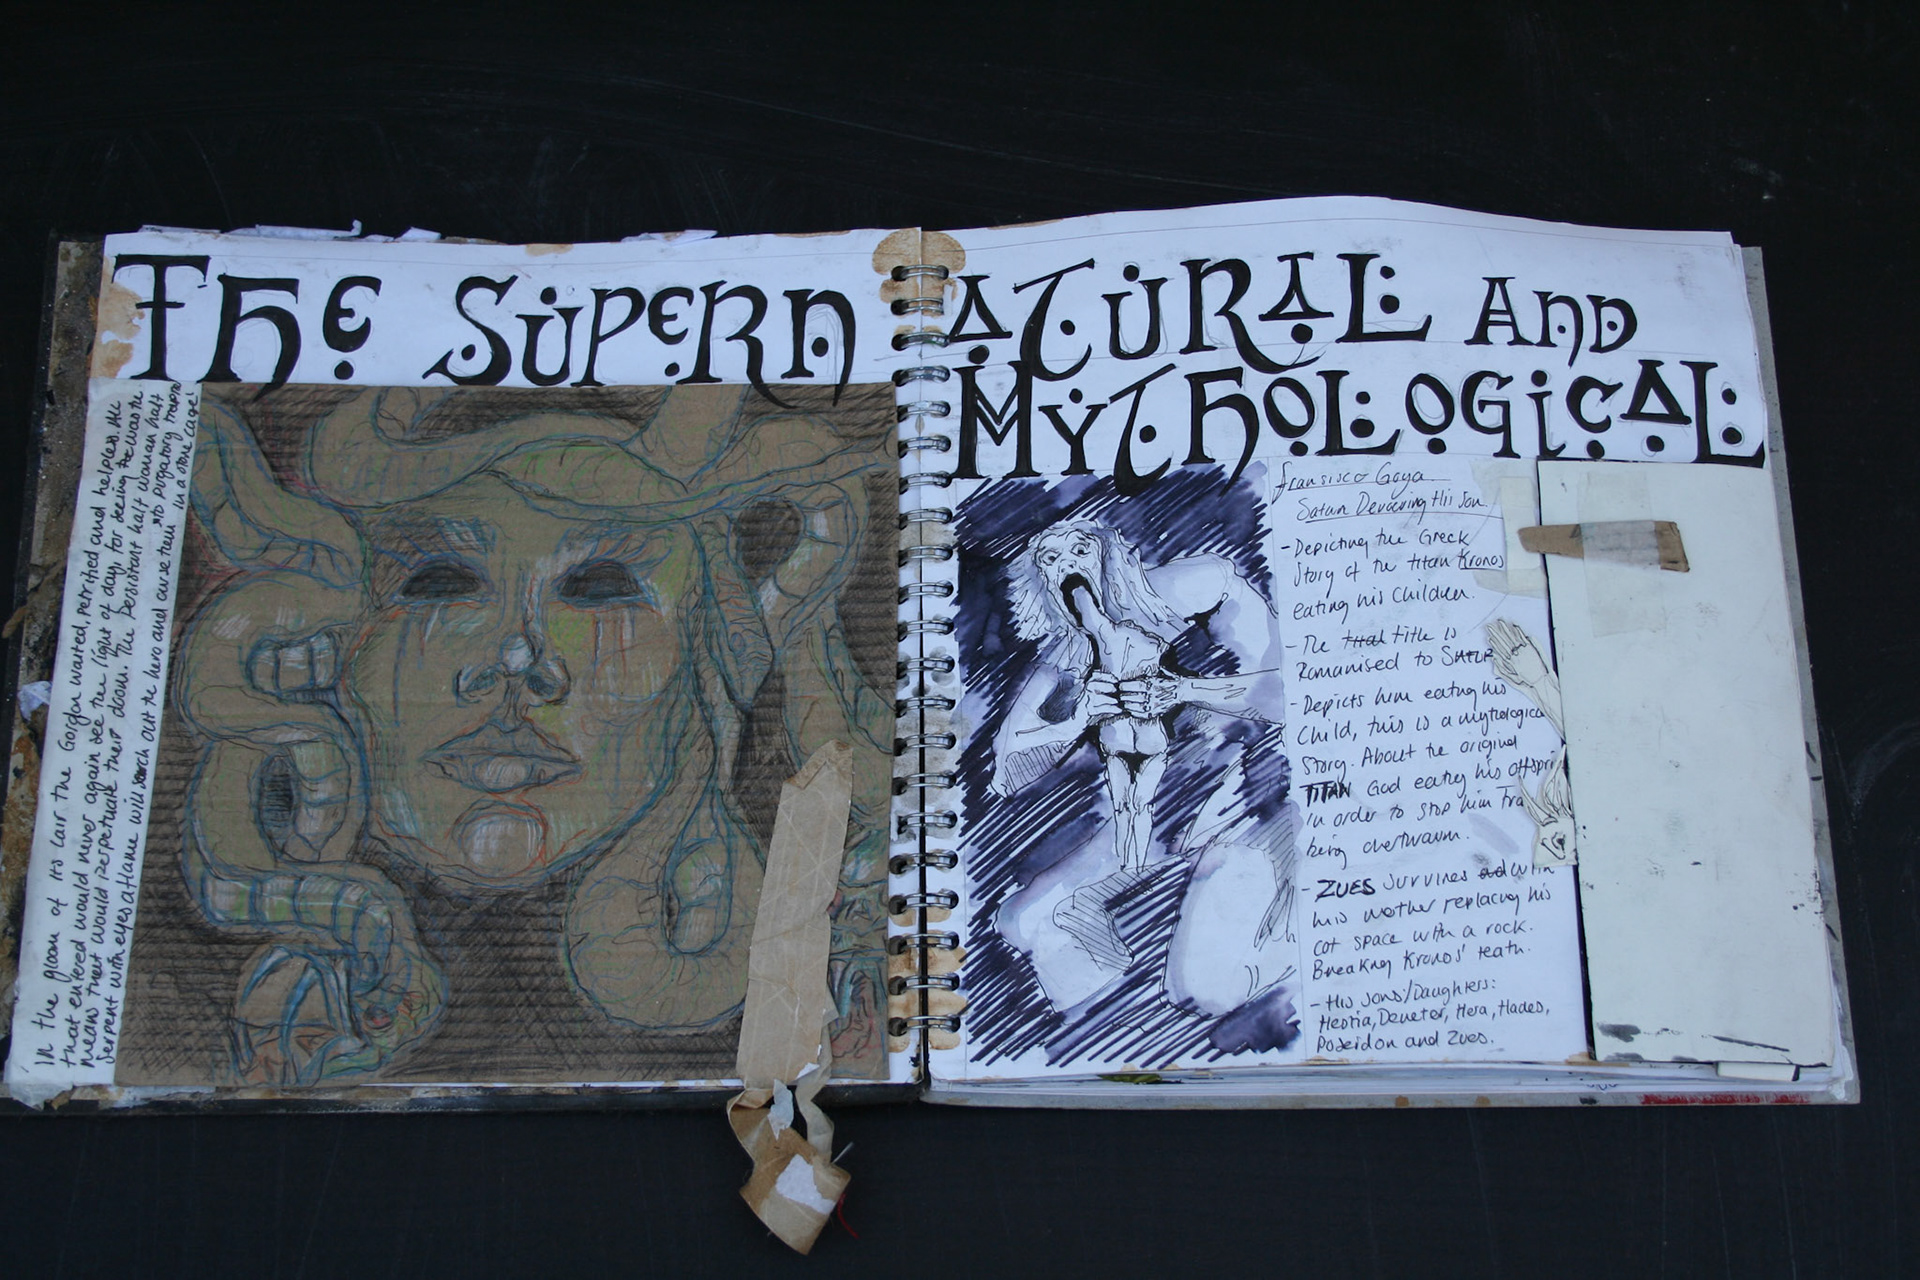 THE SUPERNATURAL AND
MYTHOLOGICAL
In the gloom of its lair the Gorgon waited, petrified and helpless. All
that entered would never again see the light of day, for seeing the was the
means that would perpetuate their doom. The Persistent half woman half
Serpent with eyes aflame will search out the hero and curse them in a stone cage!
to purgatory trapping
Fransisco Goya
Satun Devouring His Son.
- Depicting the Greek
Story of the titan Kronos
eating his children.
- The title is
Romanised to
- Depicts him eating his
Child, this is a mythologica
Story. About the original
TITAN God eating his offspri
in order to stop him fra
being overthrawn.
- ZUES survives with
his mother replacing his
cot space with a rock.
Breaking Kronos' teath.
- His sons/Daughters:
Hestia, Demeter, Hera, Hades,
Poseidon and Zues.